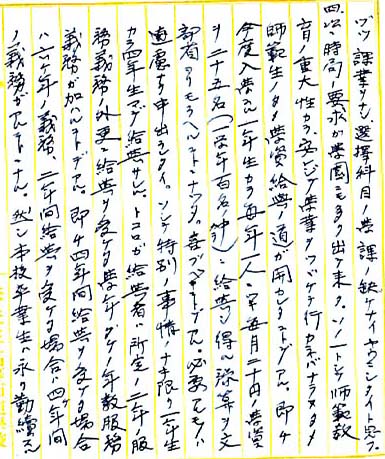 ヅツ課業タモ、選擇科目ノ農課ノ缺ケナイヤウニシタイト思フ。
四、次ニ時局ノ要求ガ學園ニモヨク出テ来タ。ソノ一トシテ師範教
育ノ重大性カラ、安ンジテ學業ヲツヅケテ行カネバナラヌタメ
師範生ノタメ學資給與ノ道ガ開カレタコトデアル。即チ
今年度入學ノ一年生カラ毎年一人ニ宛毎月二十円ノ學資
ヲ二十五名(一學年百名ノ中)ニ給與シ得ル豫算ヲ文
部省ヨリモラヘルコトニナッタ。喜ブベキコトデアル。必要アルモノハ
遠慮ナク申出デラレタイ。ソシテ特別ノ事情ノナキ限リ一年生
カラ四年生マデ給與サレル。トコロガ給與者ハ所定ノ二年服
務義務ノ外更ニ給與ヲ受ケタ學年ダケノ年数服務
義務ガ加ハルコトデアル。即チ四年間給與ヲ受ケタ場合
ハ六ケ年ノ義務、二年間給與ヲ受ケタ場合ハ四ケ年間
ノ義務ガアルコトニナル。然シ本校卒業生ハ永ク勤續スル